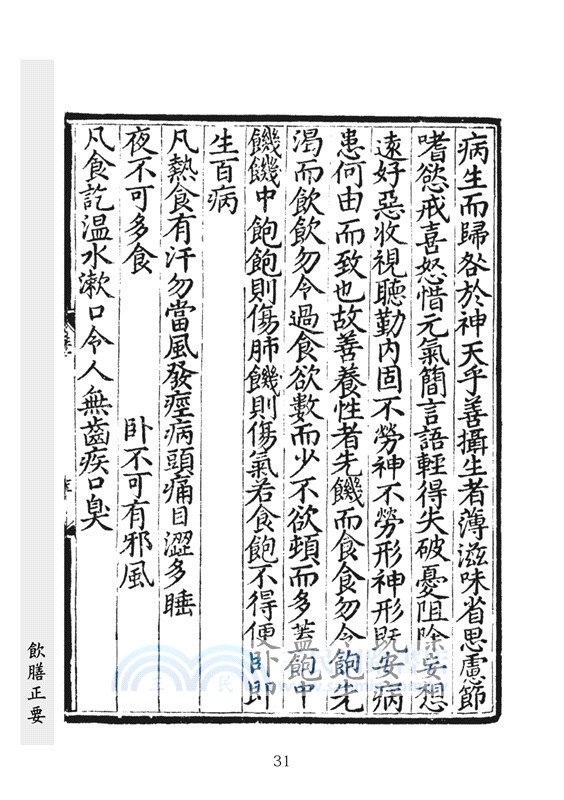 病生而歸咎於神天乎善攝生者薄滋味省思慮節
嗜慾戒喜怒惜元氣簡言語輕得失破憂阻除妄想
遠好惡收視聽勤內固不勞神不勞形神形既安病
患何由而致也故善養性者先饑而食食勿令飽先
渴而飲飲勿令過食欲數而少不欲頓而多蓋飽中
饑饑中飽飽則傷肺饑則傷氣若食飽不得便卧即
生百病
凡熱食有汗勿當風發痙病頭痛目澀多睡
夜不可多食 卧不可有邪風
凡食訖温水漱口令人無齒疾口臭
飲膳正要
31
三民